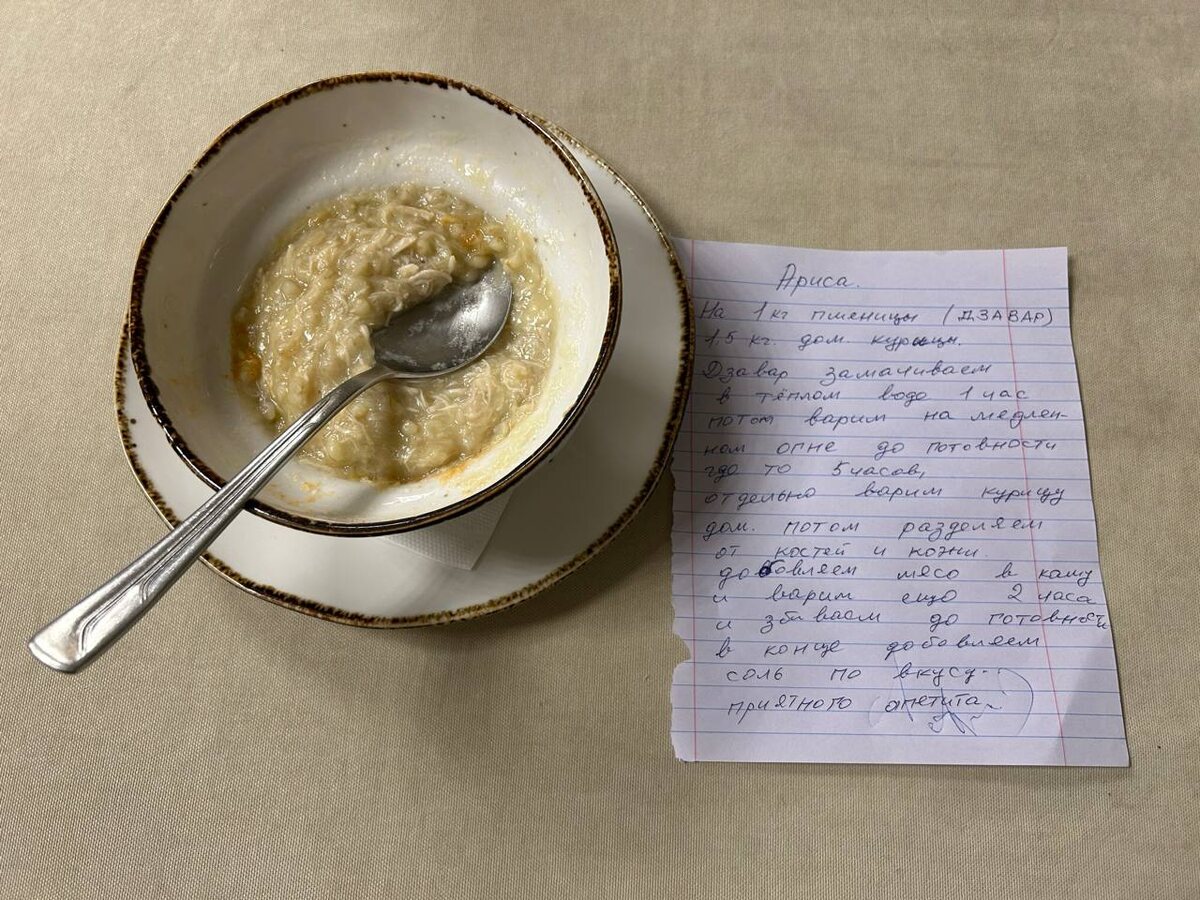 Ариса.
На 1 кг пшеницы (ДЗАВАР)
1,5 кг. дом. курицы.
Дзавар замачиваем
в тёплом водо 1 час
потом варим на медлен-
ном огне до готовности
где то 5 часов,
отдельно варим курицу
дом. потом разделяем
от костей и кожи.
добовляем мясо в кашу
и варим ещо 2 часа
и збиваем до готовнѳсти
в конце добовляем
соль по вкусу...
приятного апетита